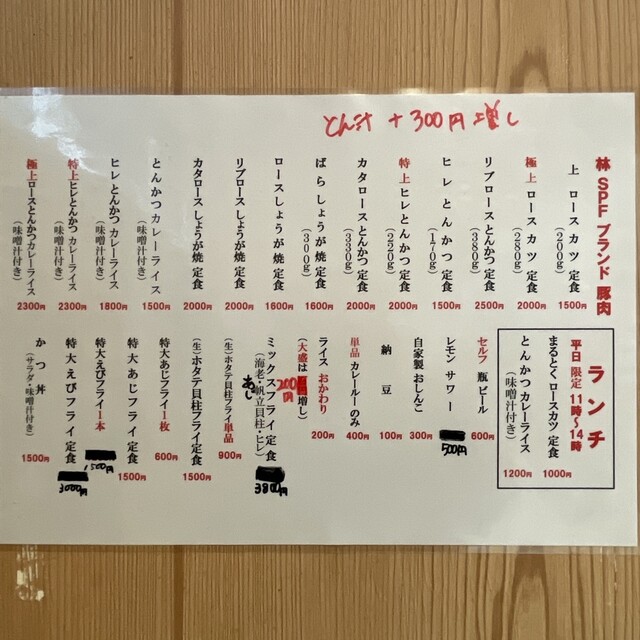 とん汁 + 300円増し
林 SPF ブランド 豚肉
上 ロースカツ 定食
(200g)
1500円
極上 ロースカツ 定食
(280g)
2000円
リブロースとんかつ 定食
(380g)
2500円
ヒレ とんかつ 定食
(170g)
1500円
特上 ヒレとんかつ 定食
(250g)
2000円
カタロースとんかつ 定食
(330g)
2000円
ばらしょうが焼 定食
(300g)
1600円
ロースしょうが焼 定食
1600円
リブロースしょうが焼 定食
2000円
カタロースしょうが焼 定食
2000円
とんかつカレーライス
(味噌汁付き)
1500円
ヒレとんかつカレーライス
(味噌汁付き)
1800円
特上ヒレとんかつカレーライス
(味噌汁付き)
2300円
極上ロースとんかつカレーライス
(味噌汁付き)
2300円
ランチ
平日 限定 11時〜14時
まるとくロースカツ 定食
1000円
とんかつカレーライス
(味噌汁付き)
1200円
セルフ 瓶 ビール
600円
レモン サワー
500円
自家製 おしんこ
300円
納 豆
100円
単品 カレールーのみ
400円
ライス おかわり
200円
(大盛は
200円
増し)
ミックスフライ 定食
(海老・帆立貝柱・ヒレ)
あじ
3800円
(生)ホタテ貝柱フライ単品
900円
(生)ホタテ貝柱フライ定食
1500円
特大あじフライ1枚
600円
特大 あじフライ 定食
1500円
特大えびフライ1本
1500円
特大 えびフライ 定食
3000円
かつ 丼
(サラダ・味噌汁付き)
1500円